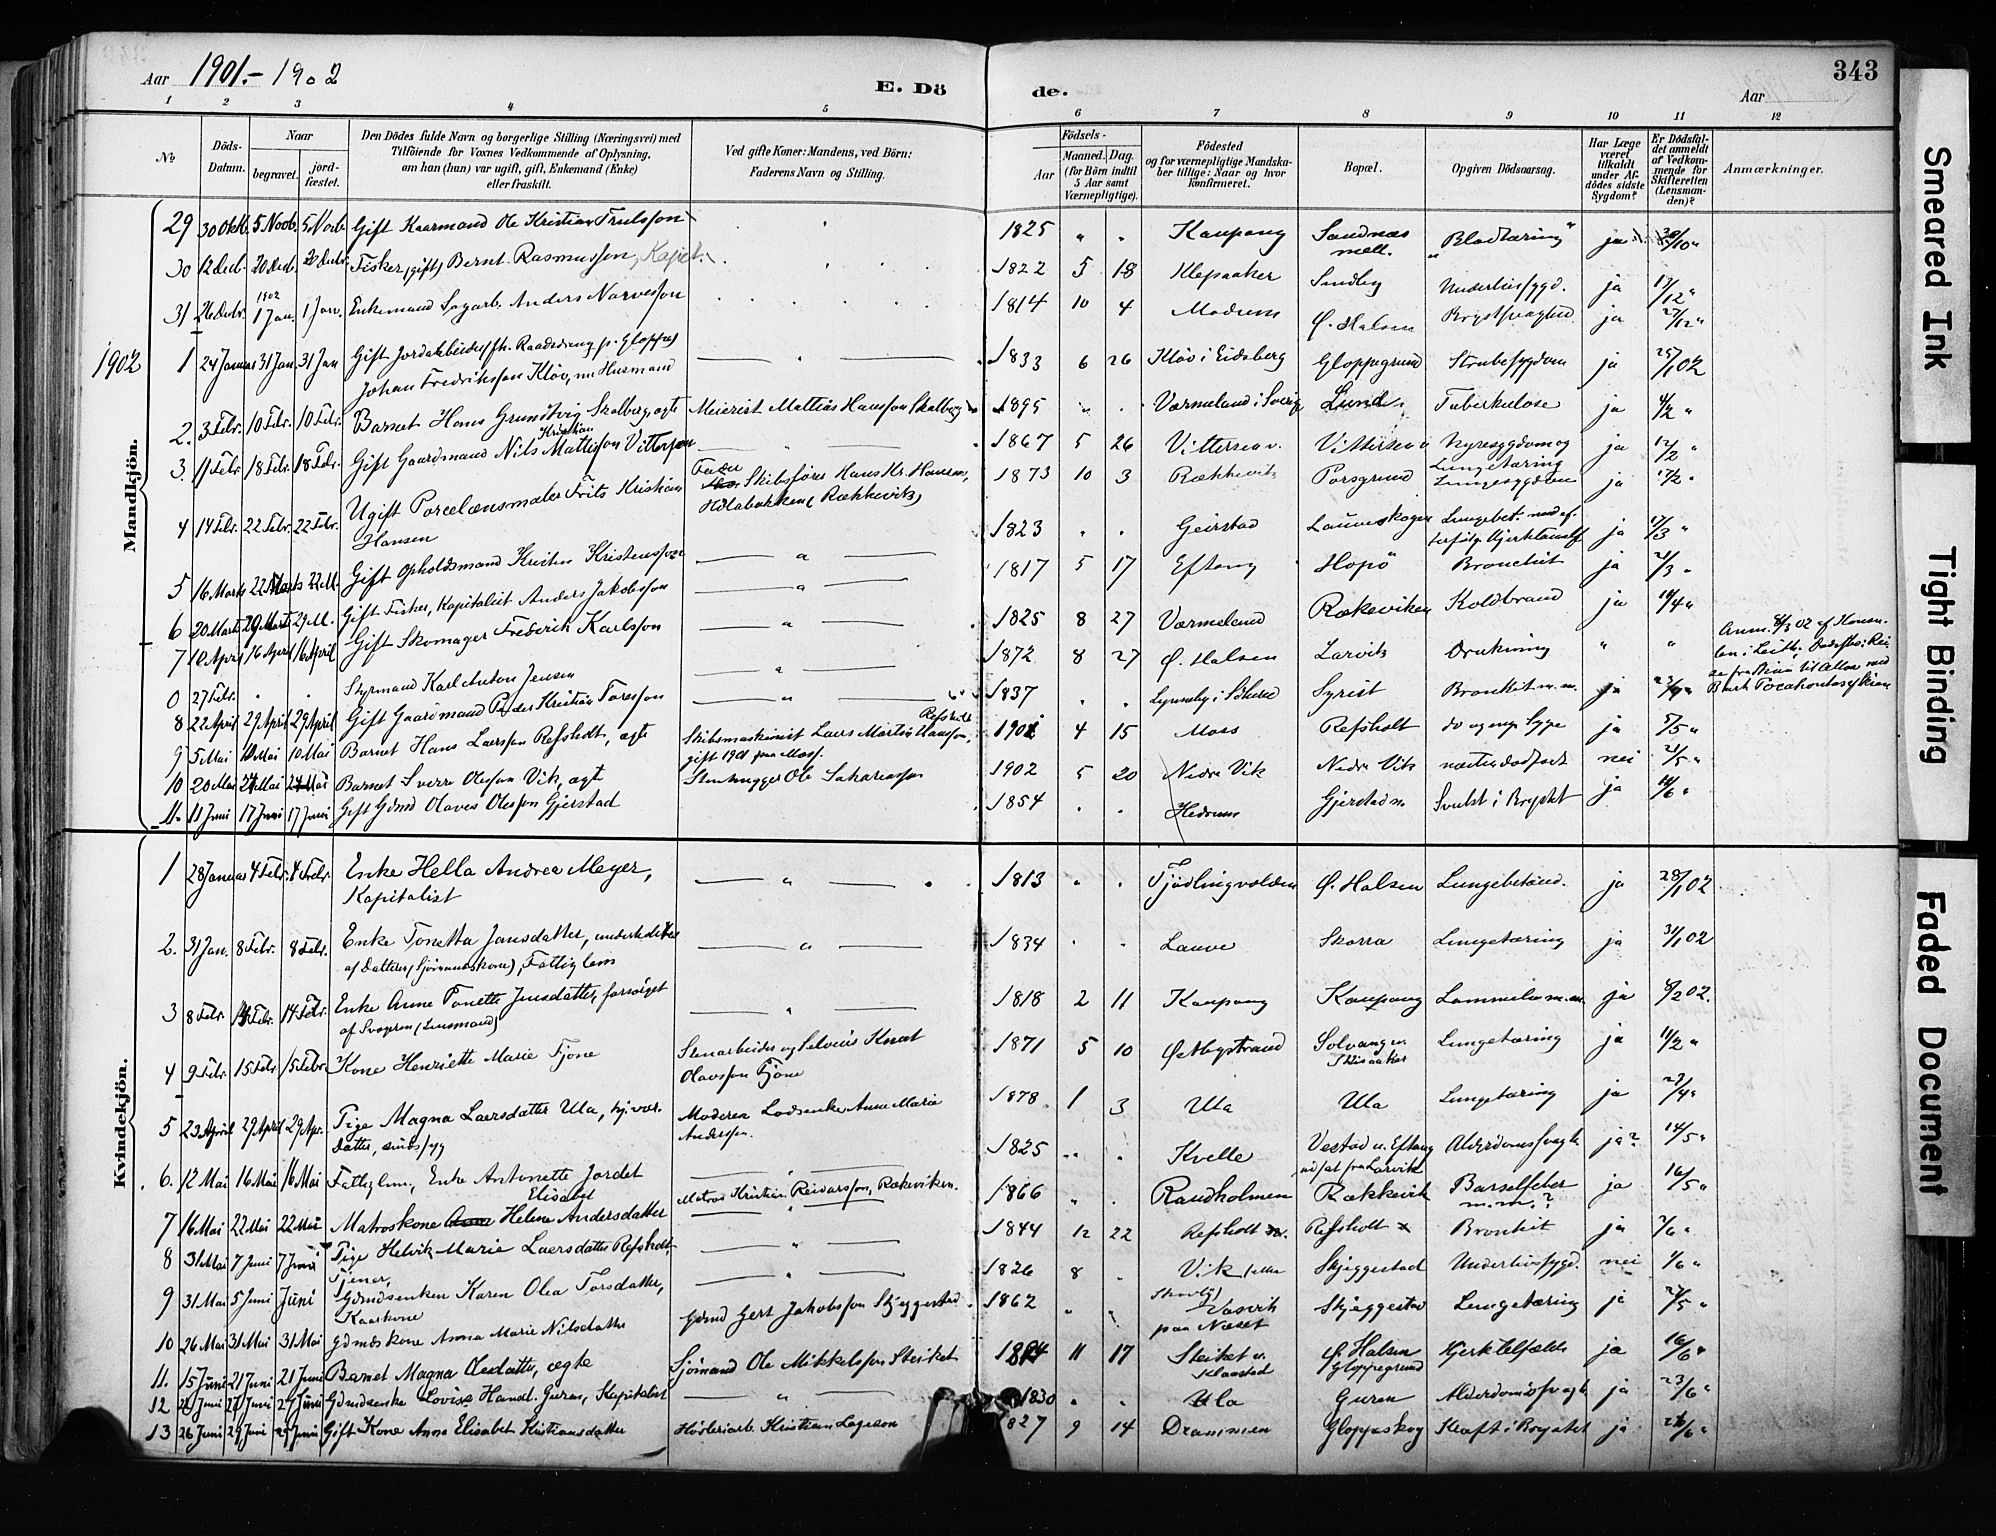 Aar 1901.-1902 E. Döde. Aar 343
1 2 3 4 5 6 7 8 9 10 11 12
No
Döds-Datum.
Naar
begravet.
jordfæstet.
Den Dödes fulde Navn og borgerlige Stilling (Næringsvei) med
Tilföiende for Voxnes Vedkommende af Oplysning,
om han (hun) var ugift, gift, Enkemand (Enke)
eller fraskilt.
Ved gifte Koner: Mandens, ved Börn:
Faderens Navn og Stilling.
Födsels-
Aar
Maaned. Dag.
(for Börn indtil
5 Aar samt
Værnepligtige).
Födested
og for værnepligtige Mandskaber tillige: Naar og hvor
konfirmeret.
Bopæl.
Opgiven Dödsaarsag.
Har Læge
været
tilkaldt
under Afdödes sidste
Sygdom?
Er Dödsfaldet anmeldt
af Vedkommende for
Skifteretten
(Lensmanden)?
Anmærkninger.
Mandkjön.
29 30 Oktb. 5 Novb. 5 Novb. Gift Kaarmand Ole Kristian Trulsson 1825 " . Kaupang Sandnæs mell. "Blodtæring" ja 30/10 "
30 12 Decb. 20 Decb. 20 Decbr. Fisker (gift) Bernt Rasmussen, Kapit. 1822 5 18 Klepaaker Sundby Underlivssygd. ja 17/12 "
31 26 Decbr. 1902 1 Jan. 1 Jan. Enkemand Sagarb. Anders Narvesson 1814 10 4 Modum Ø. Halsen Brystsvaghed ja 27/12 "
1902 1 24 Januar 31 Jan. 31 Jan Gift Jordarbeider fh. Gloppe 1833 6 26 Kløv i Eidsberg Gloppegrund Strubesygdom ja 25/1 02
Johan Fredriksson Kløv, nu Husmand
2. 3 Febr. 10 Febr. 10 Febr. Barnet Hans Grundtvig Skalberg, ægte Meierist Mattias Hansson Skalberg 1895 " . Værmeland i Sverig Lund Tuberkulose ja 4/2 "
3 11 Febr. 18 Febr. 18 Febr. Gift Gaardmand Nils Kristian Mattisson Vittersøn 1867 5 26 Vittersen. Vittersen Nyresygdom og Lungetæring ja 12/2 "
4 14 Febr. 22 Febr. 22 Febr. Ugift Porcelænsmaler Frits Kristian Hansen Fader Skibsfører Hans Kr. Hansen, Holabakken (Rækkevik) 1873 10 3 Rækkevik Porsgrund Lungesygdom ja 17/2 "
5 16 Marts 22 Marts 22 M. Gift Opholdsmand Kristen Kristensson 1823 . . Geirstad Lauveskogen Lungebet. med ja 17/3 "
6 20 Marts 29 Marts 29 M. Gift Fisker, Kapitalist Anders Jakobsson 1817 5 17 Eftang Hopø Bronchit ja 21/3 "
7 10 April 16 April 16 April Gift Skomager Frederik Karlsson 1825 8 27 Værmeland Rækeviken Koldbrand ja 14/4 "
0 27 Febr. . . Styrmand Karl Anton Jensen 1872 8 27 Ø. Halsen Larvik Drukning " " Anm. 8/3 02 af
8 22 April 29 April 29 April Gift Gaardmand Peder Kristian Toresson 1837 . . Syrist Bronkit m.m. ja 23/4 "
9 5 Mai 10 Mai 10 Mai Barnet Hans Laersson Refsholdt, ægte Skibsmaskinist Laers Martin Hansson Refsholt, gift 1901 paa Moss. 1901 4 15 Moss Refsholt ja 5/5 "
10 20 Mai 24 Mai 24 Mai Barnet Sverre Olesson Vik, ægt Stenhugger Ole Sakariasson 1902 5 20 Nedre Vik Nedre Vik næsten dødfødt nei 21/5 "
11. 11 Juni 17 Juni 17 Juni Gift Gdmd Olaves Olesson Gjerstad 1854 . . Hedrum Gjerstad Svulst i Brystet ja 14/6 "
Kvindekjön.
1 28 Januar 4 Febr. 4 Febr. Enke Hella Andrea Meyer, Kapitalist 1813 " . Tjødlingvolden Ø. Halsen Lungebetænd. ja 28/1 02
2. 31 Jan. 8 Febr. 8 Febr. Enke Tonetta Jansdatter, underholdt af Datteren (Sjømandskone), Fattiglem 1834 . . Lauve Skorra Lungetæring ja 31/1 02
3 8 Febr. 14 Febr. 14 Febr. Enke Anne Tonette Jensdatter, forsørget af Svogeren (Lensmand) 1818 2 11 Kaupang Kaupang Lammelse m.m. ja 8/2 02.
4 9 Febr. 15 Febr. 15 Febr. Kone Henriette Marie Fjøne Stenarbeider og Selveier Knut Olavsson Fjøne 1871 5 10 Østbystrand Solvang Lungetæring ja 11/2 "
5 23 April 29 April 29 Apr. Pige Magna Laersdatter Ula, hj.vær. Datter, sindssyg Moderen Lodsenke Anne Marie Andersson. 1878 1 3 Ula Ula Lungetæring ja 23/4 "
6. 12 Mai 16 Mai 16 Mai Fattiglem, Enke Antonette Jordet 1825 . . Kvelle Vestad u. Eftang udsat fra Larvik Alderdomssvagh. ja? 14/5 "
7 16 Mai 22 Mai 22 Mai Matroskone Elisabet Helene Andersdatter Matros Kristian Reidarsson, Rækeviken. 1866 " . Raudholmen Rækkevik Barselfeber m.m.? ja 16/5 "
8 31 Mai 7 Juni 7 Juni Pige Helvik Marie Laersdatter Refsholdt, Tjener, 1844 12 22 Refsholdt Refsholdt Bronkit ja 2/6 "
9 31 Mai 5 Juni Juni Gdmdsenken Karen Olea Torsdatter, Kaarkone 1826 8 . Vik Skjeggestad Underlivssygd. nei 1/6 "
10 26 Mai 31 Mai 31 Mai Gdmdskone Anna Marie Nilsdatter Gdmd Gert Jakobsson Skjeggestad 1862 " " Vasvik paa Næset Skjeggestad Lungetæring ja 27/5 "
11. 15 Juni 21 Juni 21 Juni Barnet Magna Olesdatter, ægte Sjömand Ole Mikkelsson Steiket 1894 11 17 Steiket u. Klaastad Ø. Halsen Gloppegrund Hjertelfælde ja 16/6 "
12 21 Juni 27 Juni 27 Juni Gdmdsenke Lovise Hansd. Guren, Kapitalist 1830 . . Ula Guren Alderdomssvagh. ja 23/6 "
13 26 Juni 29 Juni 29 Juni Gift Kone Anne Elisabet Kristiansdatter Høvleriarb. Kristian Lagesson 1827 9 14 Drammen Gloppeskog Kræft i Brystet ja 26/6 "
Smeared Ink
Tight Binding
Faded Document